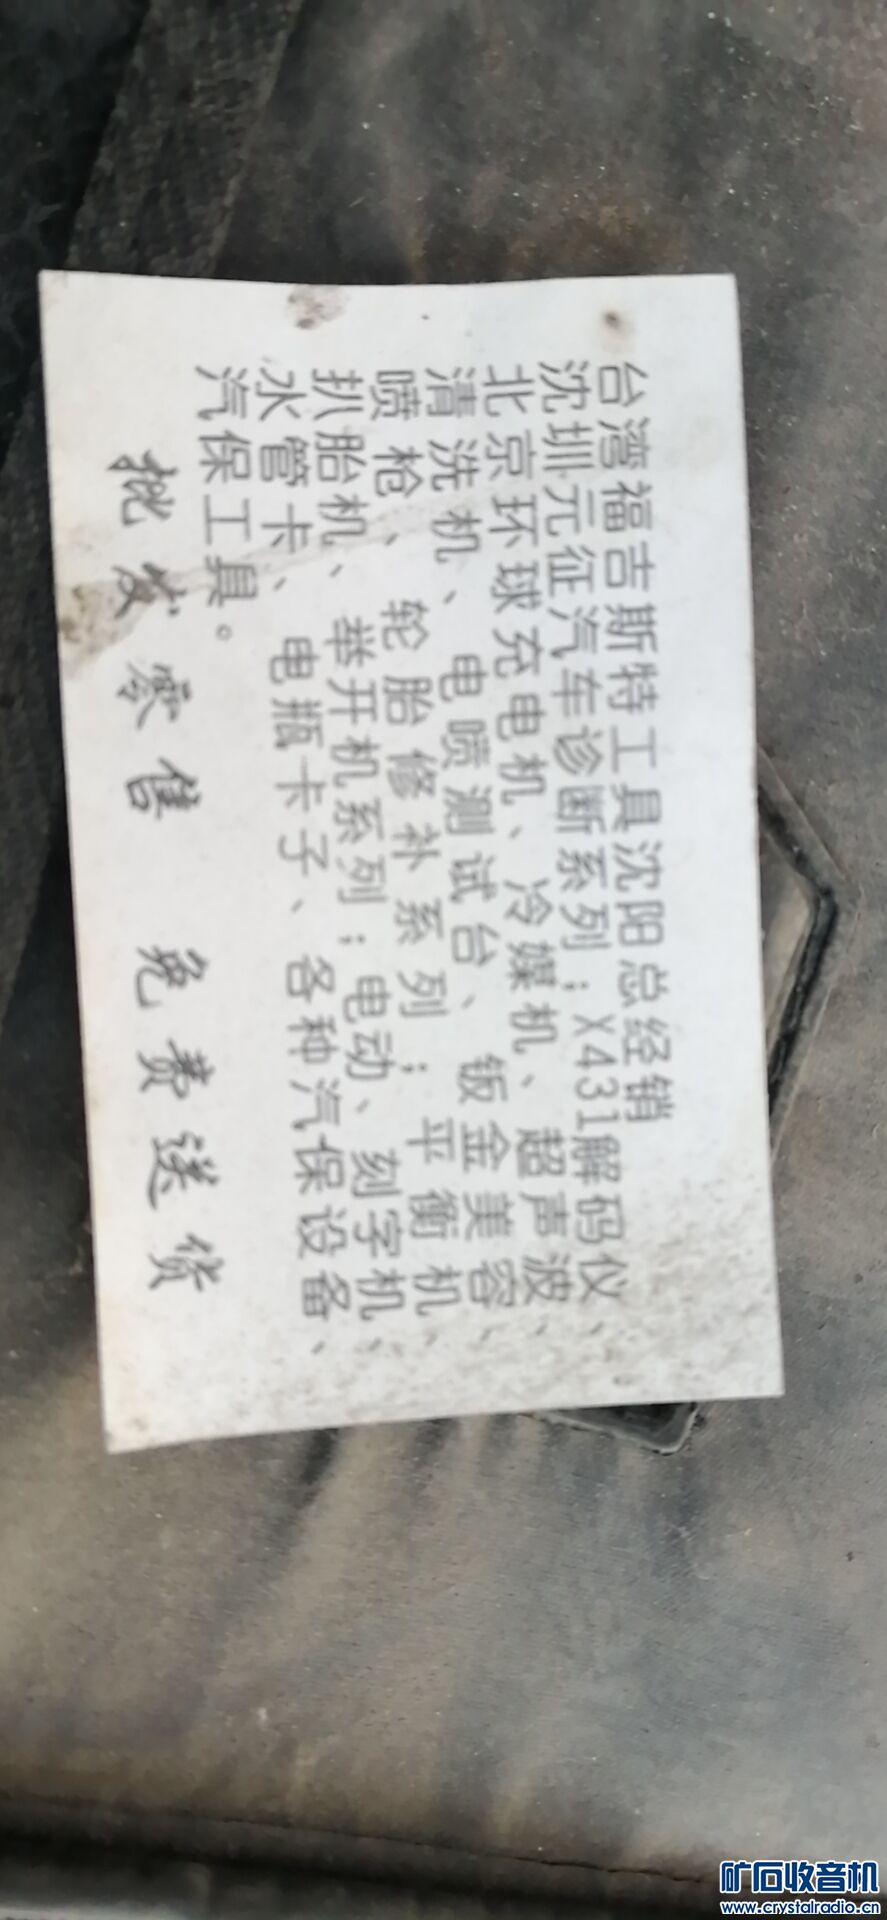 台湾福吉斯特工具沈阳总经销
沈圳元征汽车诊断系列；X431解码仪、
北京环球充电机、冷媒机、超声波、
清洗机、电喷测试台、钣金美容、
喷枪、轮胎修补系列；平衡机、
扒胎机、举开机系列；电动、刻字机、
水管卡、电瓶卡子、各种汽保设备、
汽保工具。
批发零售 免费送货
矿石收音机
www.crystalradio.cn